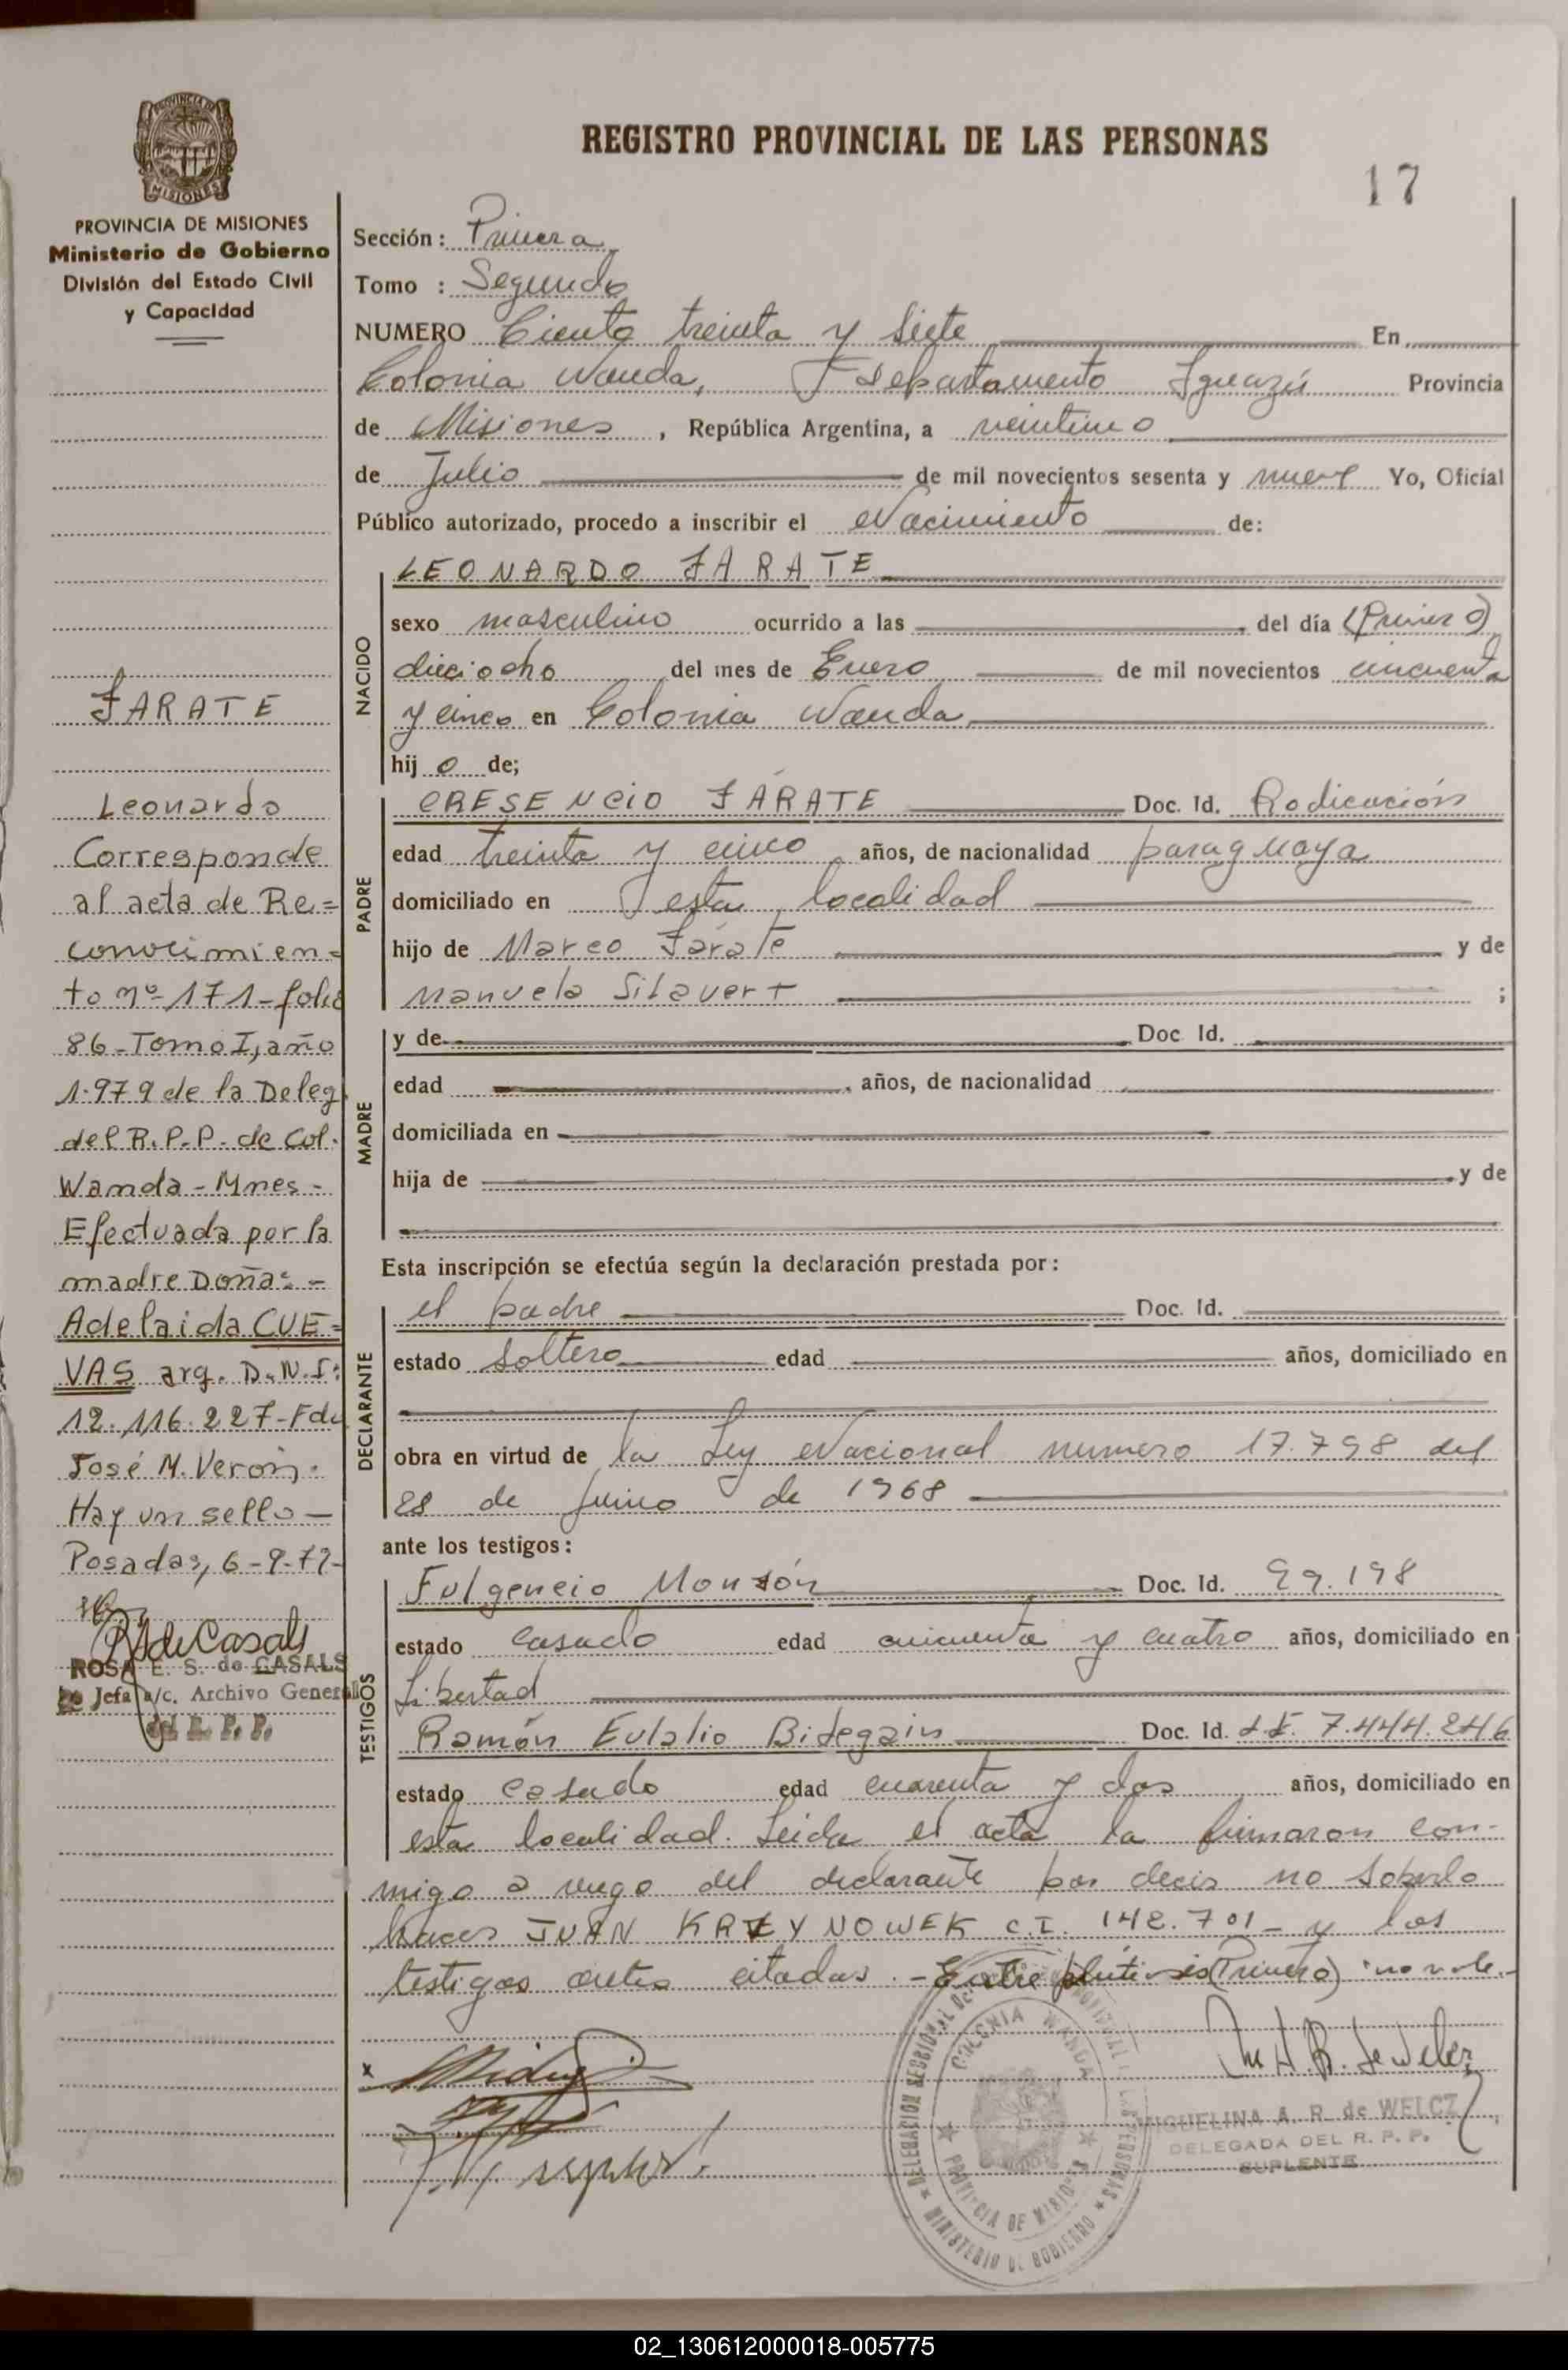 PROVINCIA DE MISIONES
Ministerio de Gobierno
División del Estado Civil
y Capacidad
REGISTRO PROVINCIAL DE LAS PERSONAS
17
Sección: Primera
Tomo : Segundo
NUMERO Ciento treinta y siete En
Colonia Wanda, Departamento Iguazú Provincia
de Misiones, República Argentina, a veintiuno
de Julio de mil novecientos sesenta y nueve Yo, Oficial
Público autorizado, procedo a inscribir el Nacimiento de:
NACIDO
LEONARDO ZARATE
sexo masculino ocurrido a las del día (Primero)
dieciocho del mes de Enero de mil novecientos cincuenta
y cinco en Colonia Wanda
hijo de;
PADRE
CRESENCIO ZÁRATE Doc. Id. Radicación
edad treinta y cinco años, de nacionalidad paraguaya
domiciliado en esta localidad
hijo de Marco Zárate y de
Manuela Silavert ;
MADRE
y de Doc. Id.
edad años, de nacionalidad
domiciliada en
hija de y de
Esta inscripción se efectúa según la declaración prestada por:
DECLARANTE
el padre Doc. Id.
estado soltero edad años, domiciliado en
obra en virtud de la Ley Nacional numero 17.798 del
28 de Junio de 1968
ante los testigos:
TESTIGOS
Fulgencio Monzón Doc. Id. 99.198
estado casado edad cincuenta y cuatro años, domiciliado en
Libertad
Ramón Eulalio Bidegain Doc. Id. L.E. 7.444.246
estado casado edad cuarenta y dos años, domiciliado en
esta localidad. Leida el acta la firmaron con-
migo a ruego del declarante por decir no saberlo
hacer JUAN KRZYNOWEK C.I. 142.701- y los
testigos antes citados.- Entre paréntesis (Primero) no vale.-
MIGUELINA A. R. de WELCZ
DELEGADA DEL R. P. P.
SUPLENTE
COLONIA WANDA
PROVINCIA DE MISIONES
MINISTERIO DE GOBIERNO
ZARATE
Leonardo
Corresponde
al acta de Re=
conocimien=
to nº 171-folio
86-Tomo I, año
1.979 de la Deleg.
del R.P.P. de Col.
Wanda-Mnes-
Efectuada por la
madre Doña:-
Adelaida CUE=
VAS arg. D.N.I:
12.116.227-Fdo
José M. Verón.
Hay un sello-
Posadas, 6-9-79-
ROSA E. S. de CASALS
Jefa a/c. Archivo General
del R. P. P.
02_130612000018-005775